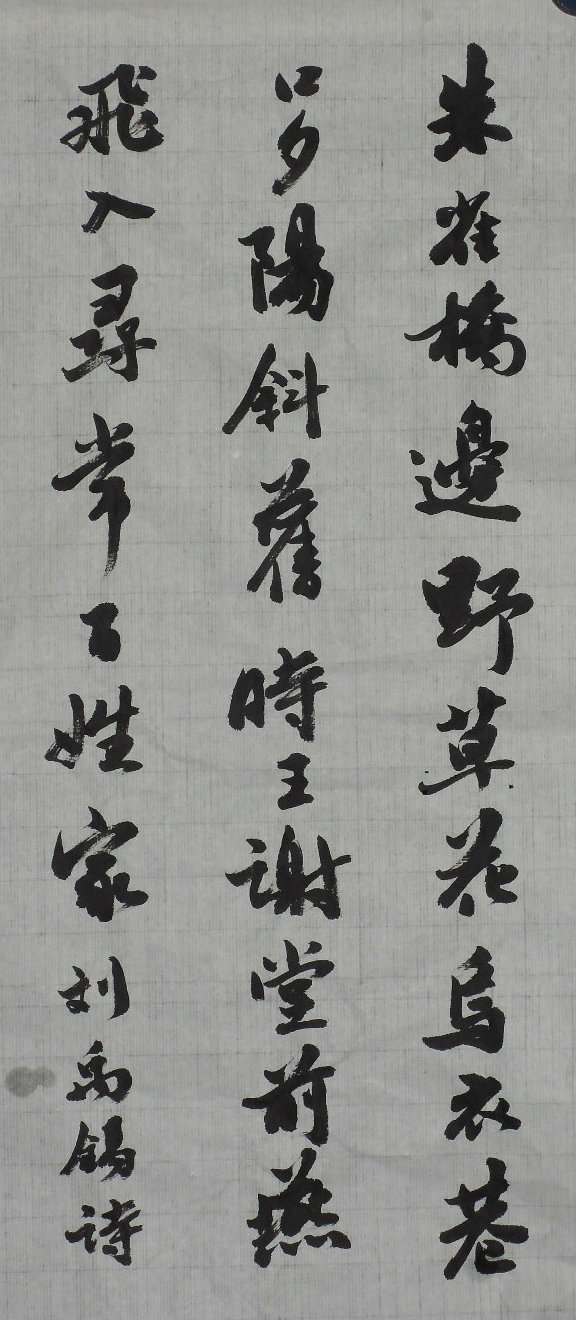 朱雀橋邊野草花烏衣巷
口夕陽斜舊時王謝堂前燕
飛入尋常百姓家刘禹錫詩